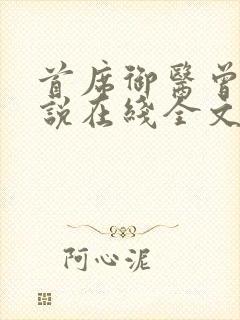 首席御醫曾
說在綫全文
阿心泥